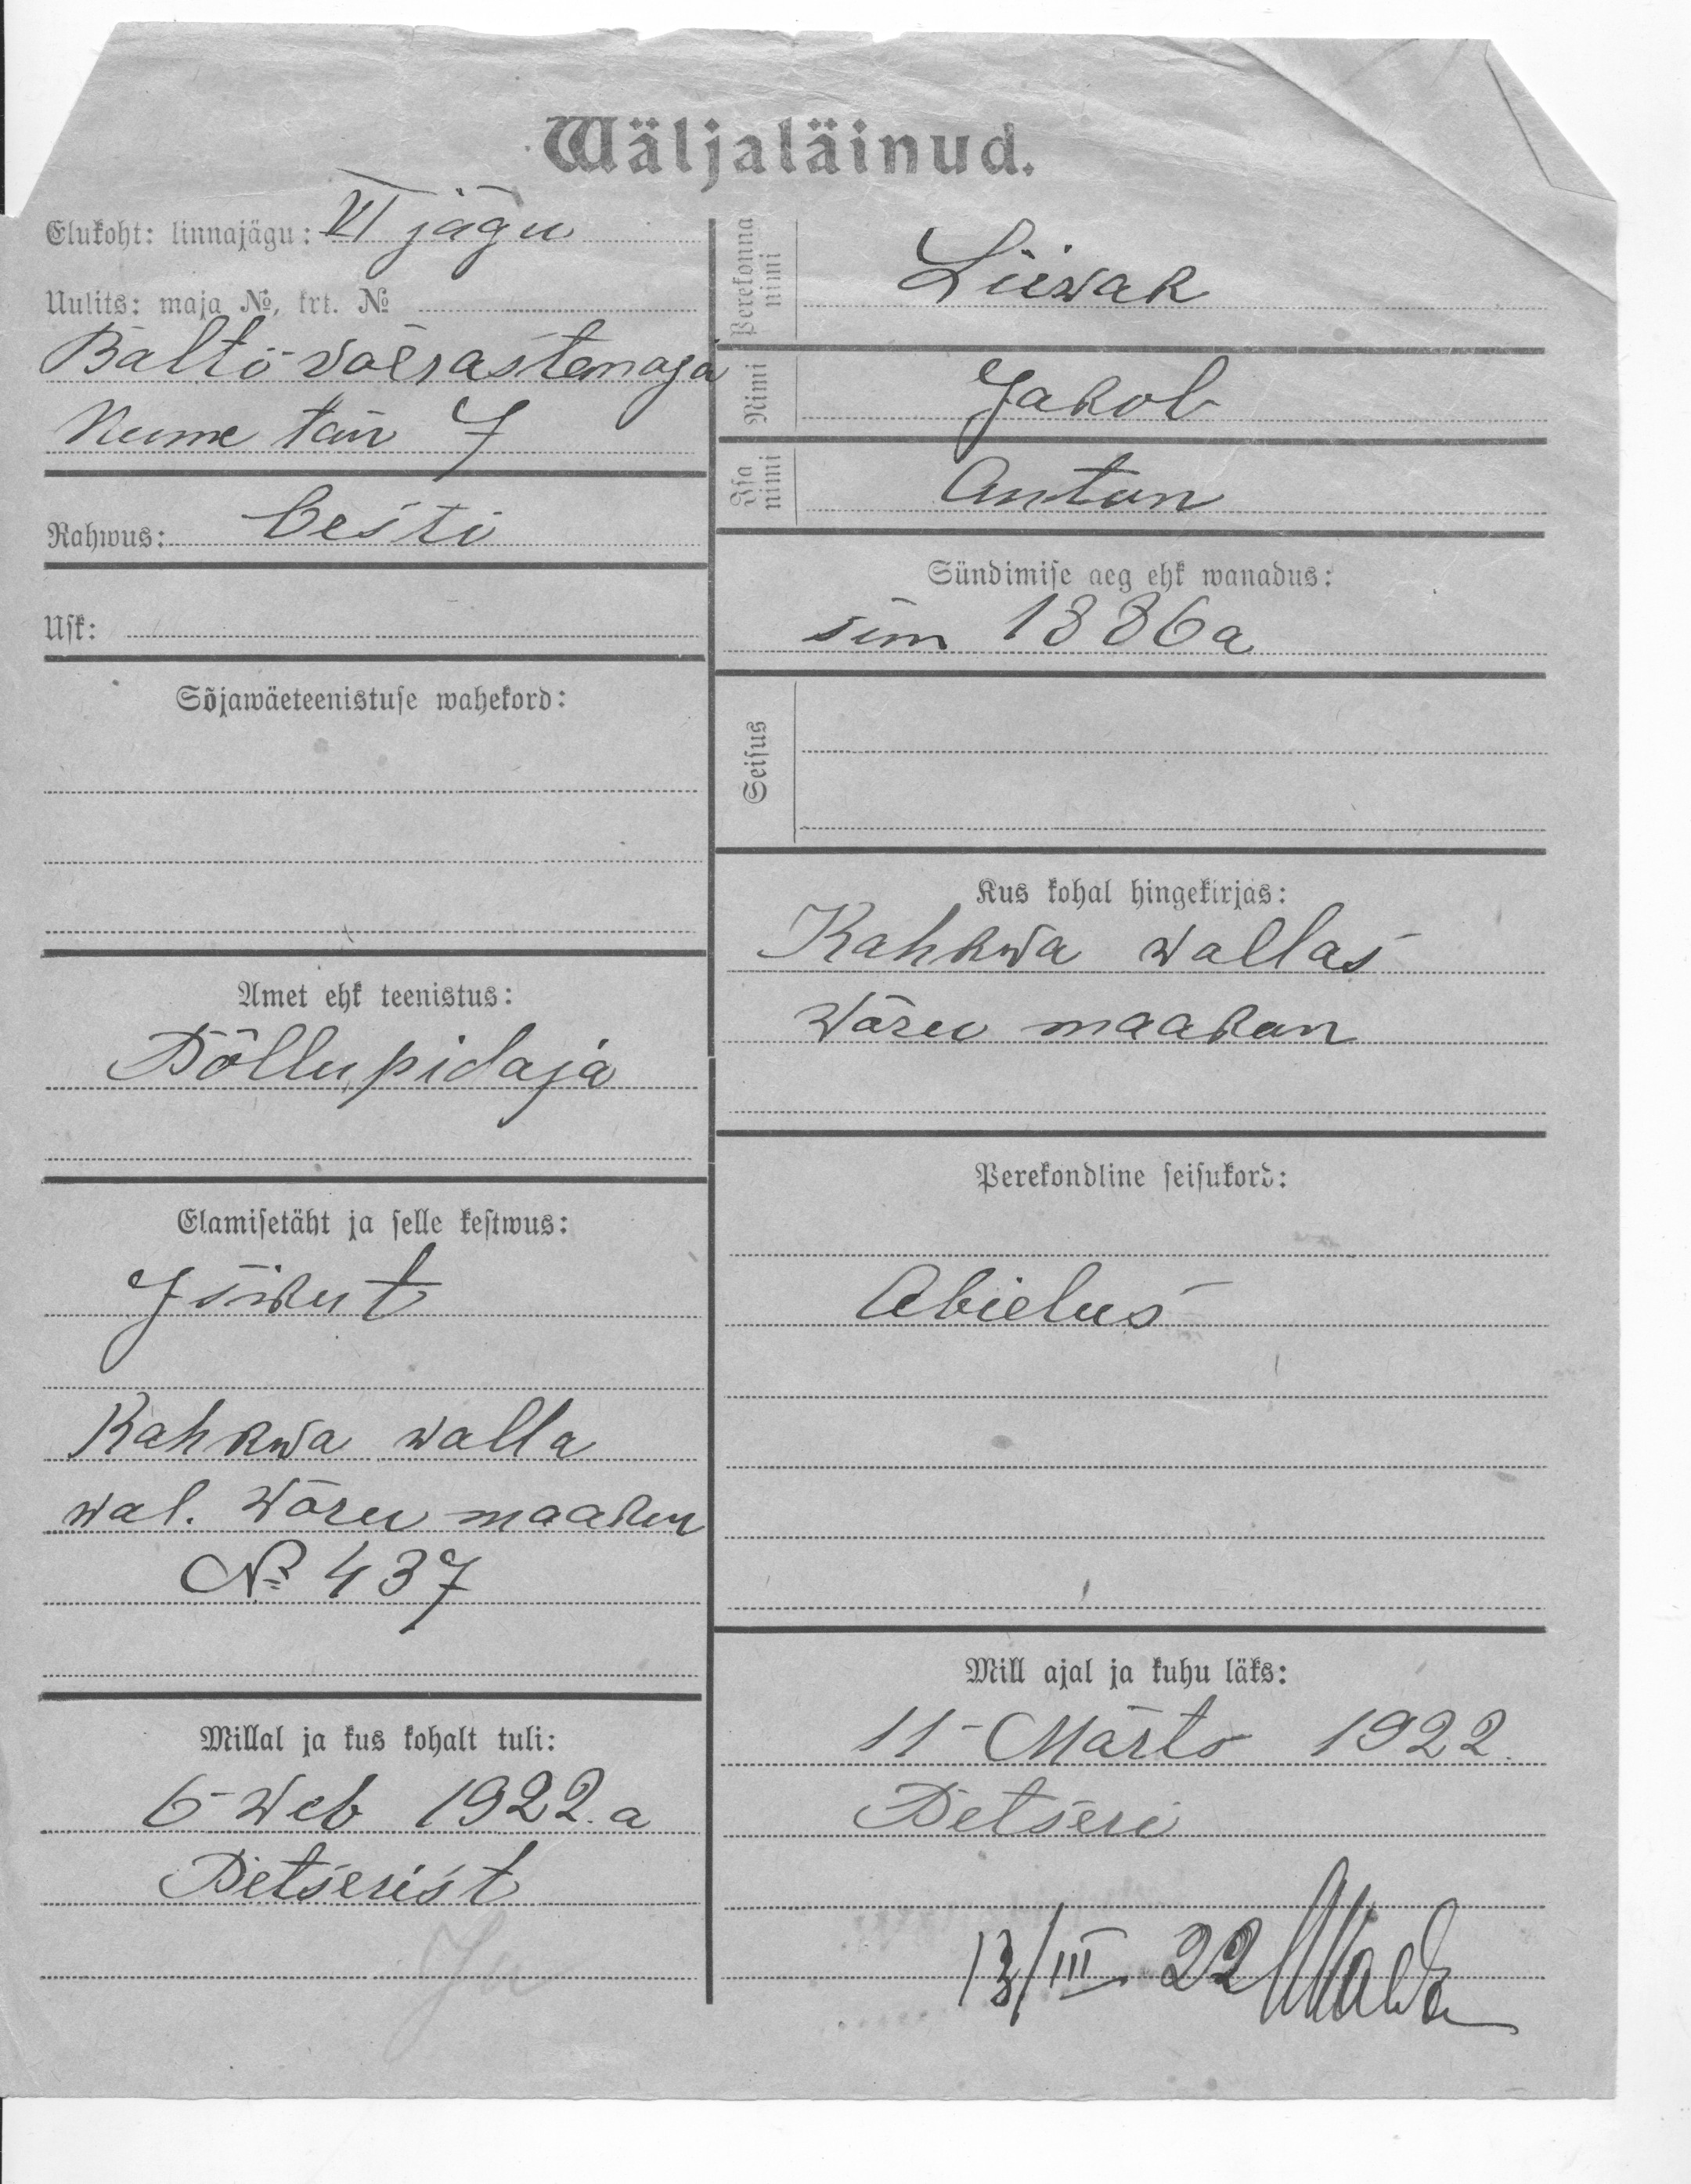 Wäljaläinud.
Elukoht: linnajägu: VI jägu
Uulits: maja №, krt. №
Balti wäerastemaja
Nume tän 7
Rahwus: Eesti
Usk:
Sõjawäeteenistuse wahekord:
Amet ehk teenistus:
Põllupidaja
Elamisetäht ja selle kestwus:
Isikut
Kahkwa walla
wal. Wõru maakon
№ 437
Millal ja kus kohalt tuli:
6 Web 1922.a
Petserist
Perekonna nimi
Liiwak
Nimi
Jakob
Isa nimi
Anton
Sündimise aeg ehk wanadus:
sün 1886a
Seisus
Kus kohal hingekirjas:
Kahkwa wallas
Wõru maakon
Perekondline seisukord:
Abielus
Mill ajal ja kuhu läks:
11 Märts 1922.
Petseri
13/III. 22